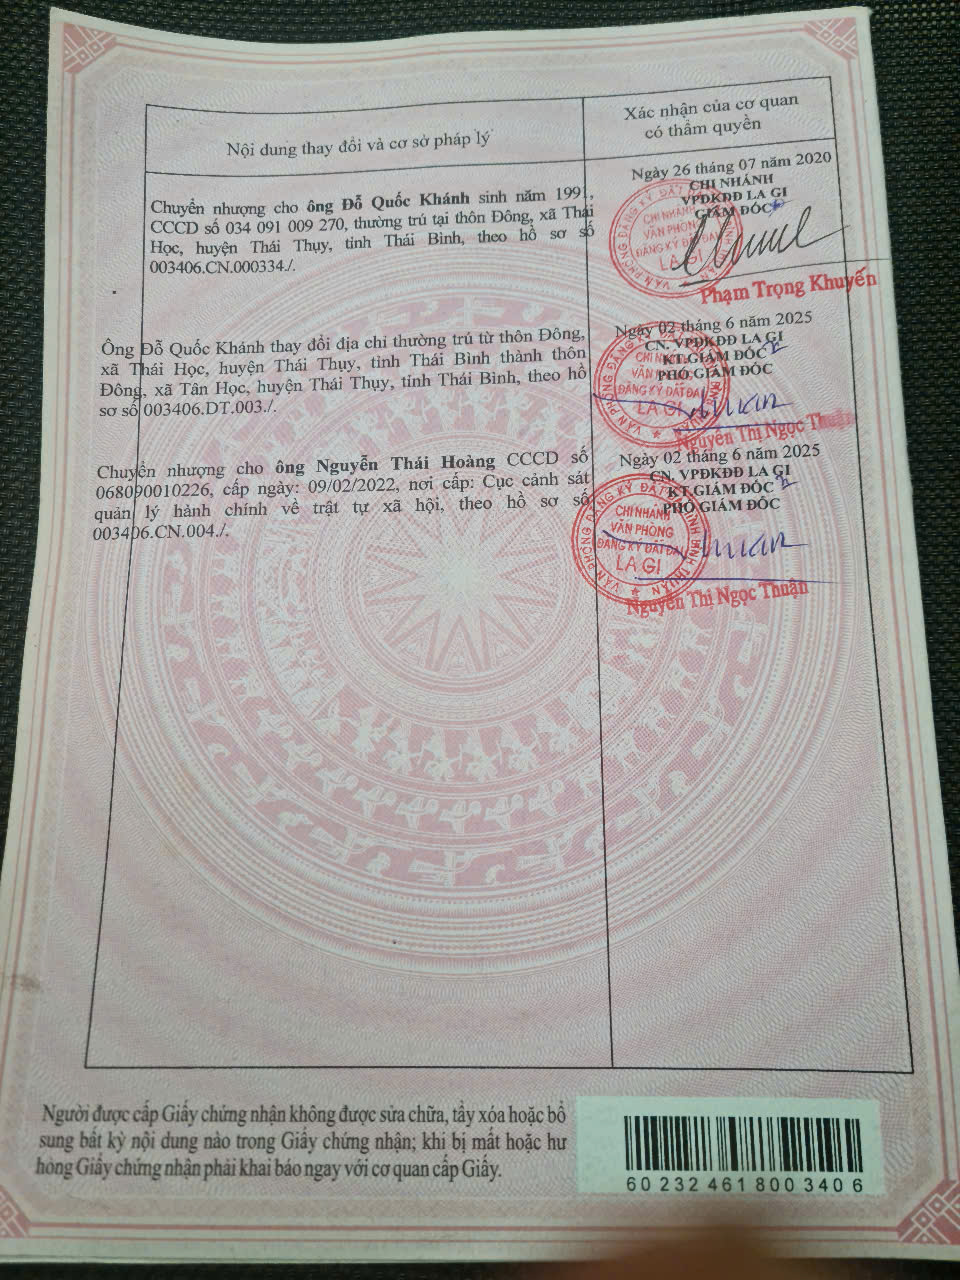 Nội dung thay đổi và cơ sở pháp lý
Xác nhận của cơ quan
có thẩm quyền
Chuyển nhượng cho ông Đỗ Quốc Khánh sinh năm 1991,
CCCD số 034 091 009 270, thường trú tại thôn Đông, xã Thái
Học, huyện Thái Thụy, tỉnh Thái Bình, theo hồ sơ số
003406.CN.000334./.
Ngày 26 tháng 07 năm 2020
CHI NHÁNH
VPĐKĐĐ LA GI
GIÁM ĐỐC
CHI NHÁNH
VĂN PHÒNG
ĐĂNG KÝ ĐẤT ĐAI
LA GI
Phạm Trọng Khuyến
Ông Đỗ Quốc Khánh thay đổi địa chỉ thường trú từ thôn Đông,
xã Thái Học, huyện Thái Thụy, tỉnh Thái Bình thành thôn
Đông, xã Tân Học, huyện Thái Thụy, tỉnh Thái Bình, theo hồ
sơ số 003406.DT.003./.
Ngày 02 tháng 6 năm 2025
CN. VPĐKĐĐ LA GI
KT.GIÁM ĐỐC
PHÓ GIÁM ĐỐC
CHI NHÁNH
VĂN PHÒNG
ĐĂNG KÝ ĐẤT ĐAI
LA GI
Nguyễn Thị Ngọc Thuận
Chuyển nhượng cho ông Nguyễn Thái Hoàng CCCD số
068090010226, cấp ngày: 09/02/2022, nơi cấp: Cục cảnh sát
quản lý hành chính về trật tự xã hội, theo hồ sơ số
003406.CN.004./.
Ngày 02 tháng 6 năm 2025
CN. VPĐKĐĐ LA GI
KT.GIÁM ĐỐC
PHÓ GIÁM ĐỐC
VĂN PHÒNG ĐĂNG KÝ ĐẤT ĐAI TỈNH BÌNH THUẬN
CHI NHÁNH
VĂN PHÒNG
ĐĂNG KÝ ĐẤT ĐAI
LA GI
Nguyễn Thị Ngọc Thuận
Người được cấp Giấy chứng nhận không được sửa chữa, tẩy xóa hoặc bổ
sung bất kỳ nội dung nào trong Giấy chứng nhận; khi bị mất hoặc hư
hỏng Giấy chứng nhận phải khai báo ngay với cơ quan cấp Giấy.
60 232 461 800 3406